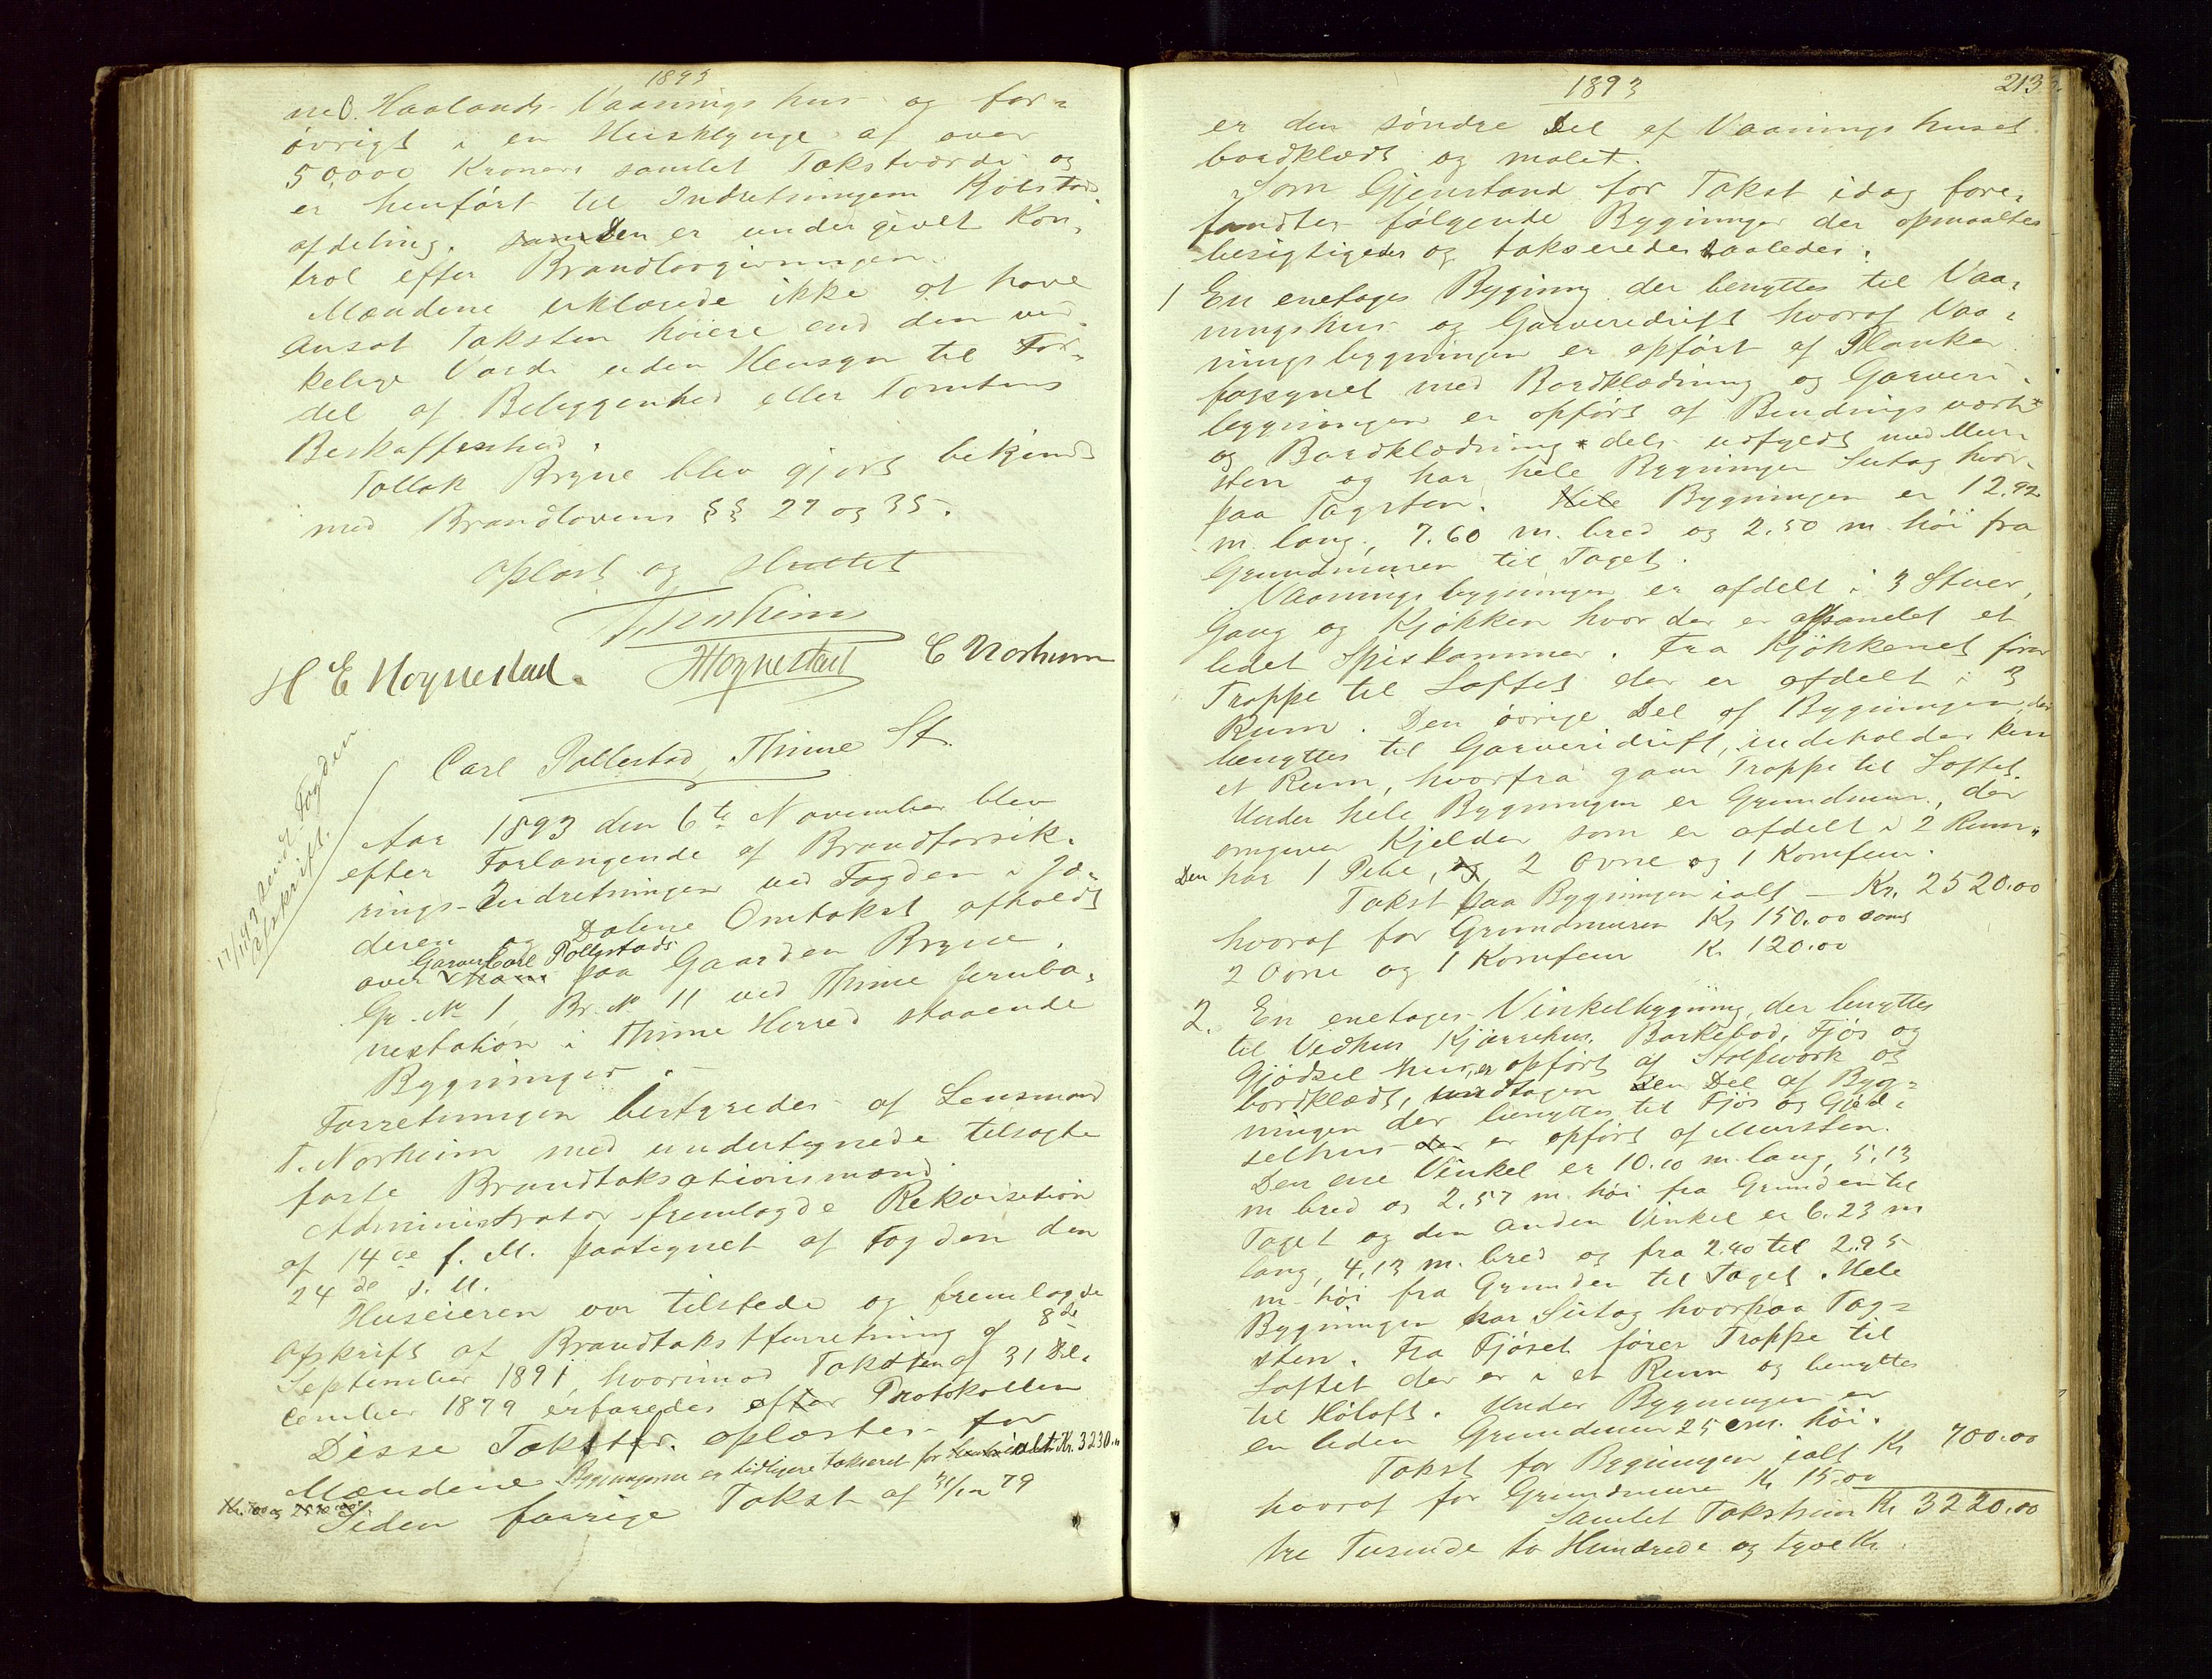 1893
ne O. Haalands Vaaningshus og for-
övrigt i en Husklynge af over
50,000 Kroners samlet Takstværdi og
er henfört til Indretningens Kjöbstads
afdeling. samt Den er undergivet Kon-
trol efter Brandlovgivningen.
Mændene erklærede ikke at have
Ansat Taksten höiere end den vir-
kelige Værdi uden Hensyn til For-
del af Beliggenhed eller Tomtens
Beskaffenhed.
Tollak Bryne blev gjort bekjendt
med Brandlovens §§ 27 og 35.
Oplæst og Sluttet
T. Norheim
H E Hognestad. J Hognestad E Norheim
Carl Pollestad, Thime St.
17/11 93 sendt Fogden
Afskrift.
Aar 1893 den 6te November blev
efter Forlangende af Brandforsik-
rings-Indretningen ved Fogden i Jæ-
deren og Dalene Omtakst afholdt
Garver Carl Pollestads
over paa Gaarden Bryne.
Gr. No 1, Br. No 11 ved Thime Jernba-
nestation i Thime Herred staaende
Bygninger.
Forretningen bestyredes af Lensmand
T. Norheim med undertegnede tilsagte
faste Brandtaksationsmænd.
Administrator fremlagde Rekvisition
af 14de f. M. paategnet af Fogden den
24de s. M.
Huseieren var tilstede og fremlagde
Afskrift af Brandtakstforretning af 8de
September 1891, hvorimod Taksten af 31 De-
cember 1879 erfaredes efter Protokollen
Disse Takster oplæstes for
Mændene Bygningerne er tidligere takseret for ialt Kr. 3230.00
Kr. 700 og 2530 00
Siden forrige Takst af 31/12 79
1893
213
er den söndre Del af Vaaningshuset
bordklædt og malet.
Som Gjenstand for Takst idag fore-
fandtes fölgende Bygninger der opmaaltes
besigtigedes og takseredes saaledes:
1 En enetages Bygning der benyttes til Vaa-
ningshus og Garveridrift hvoraf Vaa-
ningsbygningen er opfört af Planker
forsynet med Bordklædning og Garveri-
bygningen er opfört af Bindingsværk
og Bordklædning dels udfyldt med Mur-
sten og har hele Bygningen Sutag hvor-
paa Tagsten. Hele Bygningen er 12.92
m. lang, 7.60 m. bred og 2.50 m höi fra
Grundmuren til Taget.
Vaaningsbygningen er afdelt i 3 Stuer,
Gang og Kjökken hvor der er afpanelet et
lidet Spiskammer. Fra Kjökkenet förer
Trappe til Loftet der er afdelt i 3
Rum. Den övrige Del af Bygningen, der
benyttes til Garveridrift, indeholder kun
et Rum, hvorfra gaar Trappe til Loftet.
Under hele Bygningen er Grundmur, der
omgiver Kjelder som er afdelt i 2 Rum.
Den har 1 Pibe, og 2 Ovne og 1 Komfeur.
Takst paa Bygningen ialt – Kr. 2520.00
hvoraf for Grundmuren Kr 150.00 samt
2 Ovne og 1 Komfeur Kr 120.00
2. En enetages Vinkelbygning, der benyttes
til Vedhus Kjærrehus, Barkebod, Fjös og
Gjödselhus, er opfört af Stolpeværk og
bordklædt, undtagen den Del af Byg-
ningen der benyttes til Fjös og Gjöd-
selhus der er opfört af Mursten.
Den ene Vinkel er 10.10 m. lang, 5.13
m bred og 2.57 m. höi fra Grunden til
Taget og den anden Vinkel er 6.23 m
lang, 4.13 m. bred og fra 2.40 til 2.95
m höi fra Grunden til Taget. Hele
Bygningen har Sutag hvorpaa Tag-
sten. Fra Fjöset förer Trappe til
Loftet der er i et Rum og benyttes
til Höloft. Under Bygningen er
en liden Grundmur 25 cm. höi.
Takst for Bygningen ialt Kr 700.00
hvoraf for Grundmuren Kr 15.00
Samlet Takstsum Kr 3220.00
tre Tusinde to Hundrede og tyve Kr.